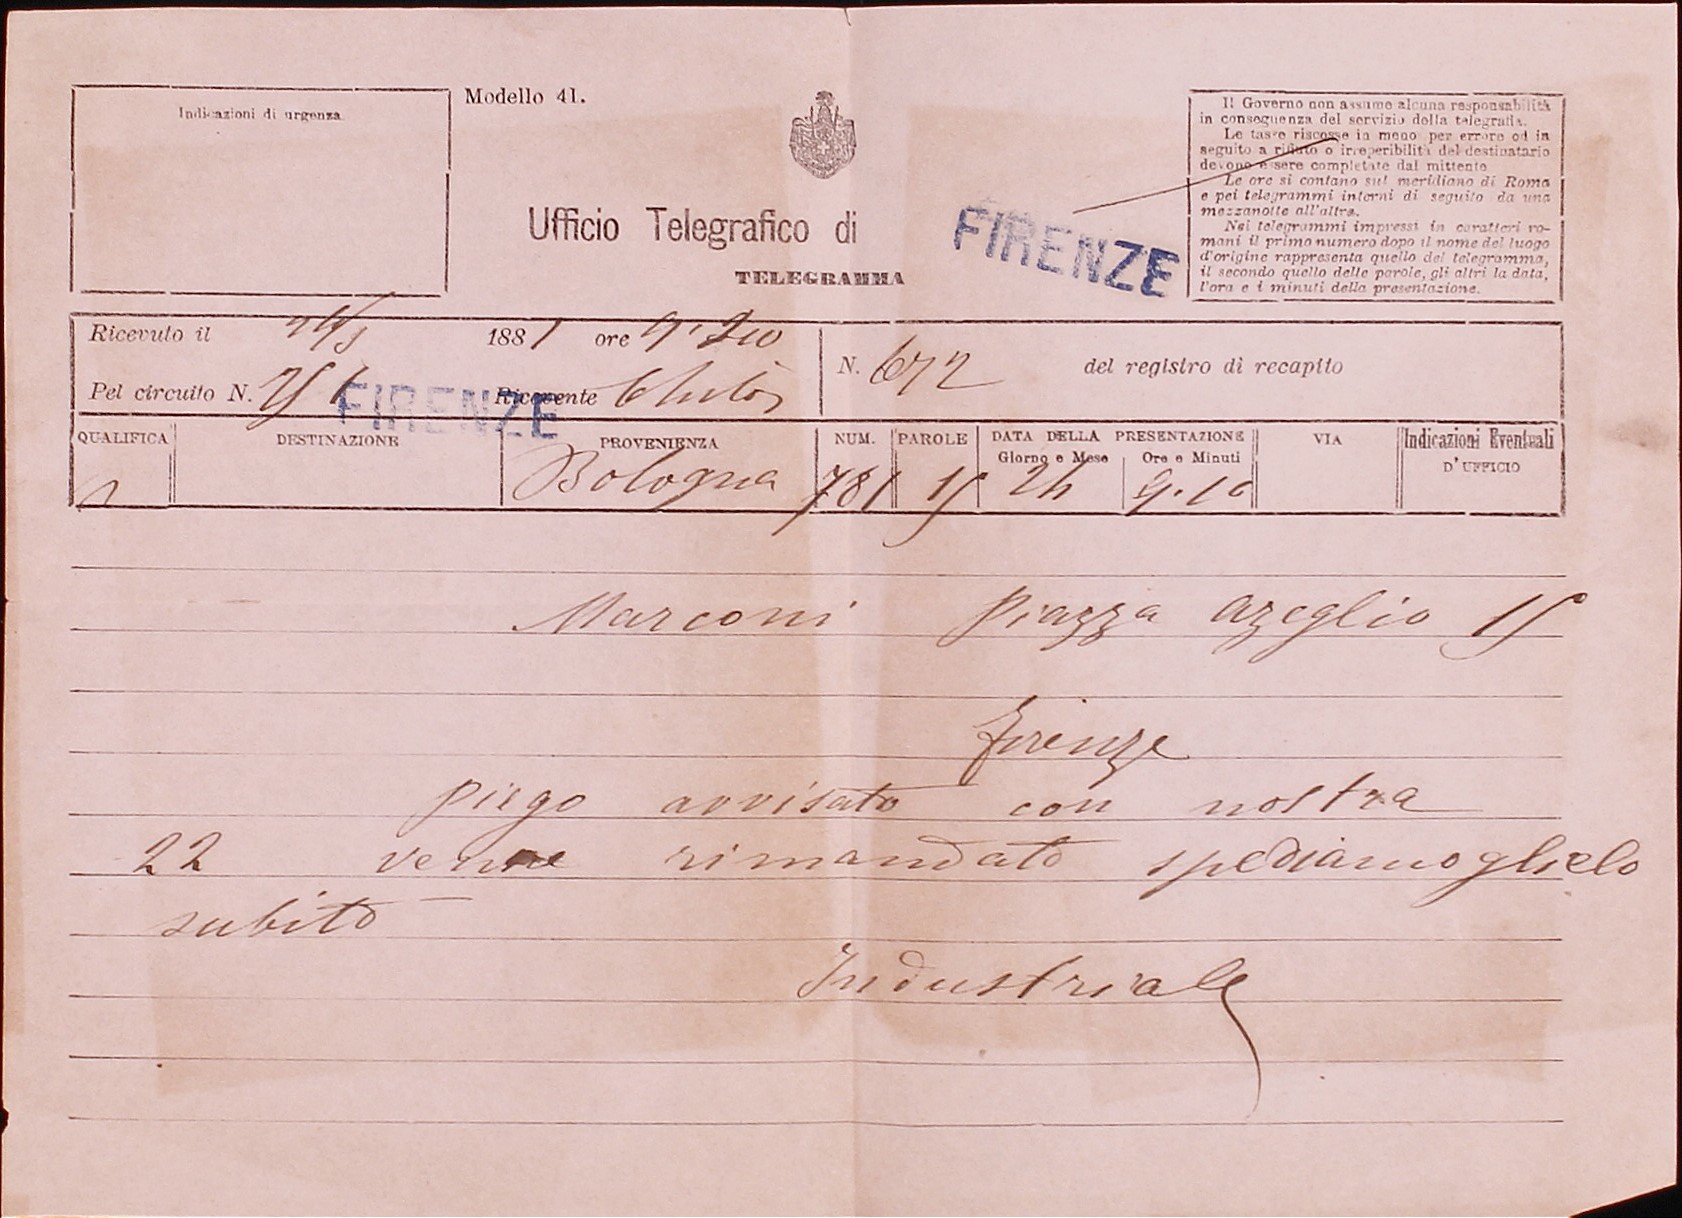 Indicazioni di urgenza
Modello 41.
Il Governo non assume alcuna responsabilità
in conseguenza del servizio della telegrafia.
Le tasse riscosse in meno per errore od in
seguito a rifiuto o irreperibilità del destinatario
devono essere completate dal mittente
Le ore si contano sul meridiano di Roma
e pei telegrammi interni di seguito da una
mezzanotte all'altra.
Nei telegrammi impressi in caratteri ro-
mani il primo numero dopo il nome del luogo
d'origine rappresenta quello del telegramma,
il secondo quello delle parole, gli altri la data,
l'ora e i minuti della presentazione.
Ufficio Telegrafico di
FIRENZE
TELEGRAMMA
Ricevuto il 1881 ore
Pel circuito N. Ricevente
FIRENZE
N. 672 del registro di recapito
QUALIFICA DESTINAZIONE PROVENIENZA NUM. PAROLE DATA DELLA PRESENTAZIONE VIA Indicazioni Eventuali
Giorno e Mese Ore e Minuti D'UFFICIO
Bologna 781 15 24 9.10
Marconi Piazza Azeglio 15
Firenze
Piego avvisato con nostra
22 venne rimandato spediamoglielo
subito
Industriale